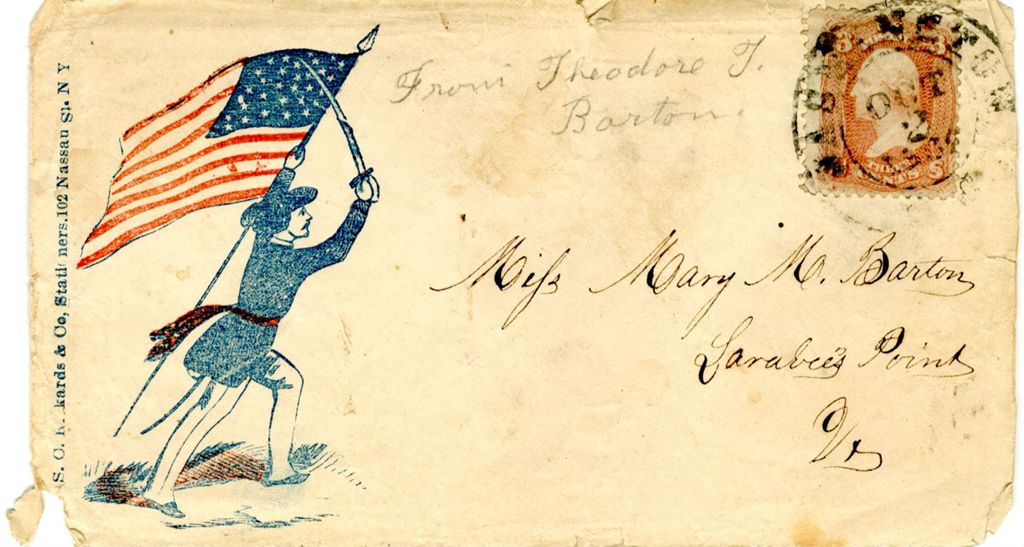 S. C. Rickards & Co, Stationers. 102 Nassau St. N Y
From Theodore T.
Barton.
Miss Mary M. Barton
Larabee's Point
Vt
3 3
OC